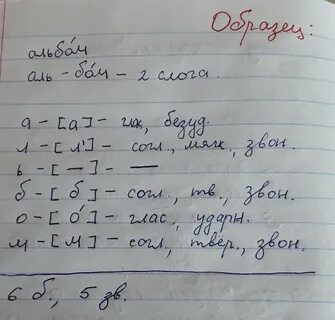 Образец:
альбо́м
аль - бо́м - 2 слога.
а - [а] - гл, безуд.
л - [л'] - согл., мягк., звон.
ь - [—] - —
б - [б] - согл., тв., звон.
о - [о́] - глас., ударн.
м - [м] - согл., твёр., звон.
6 б., 5 зв.